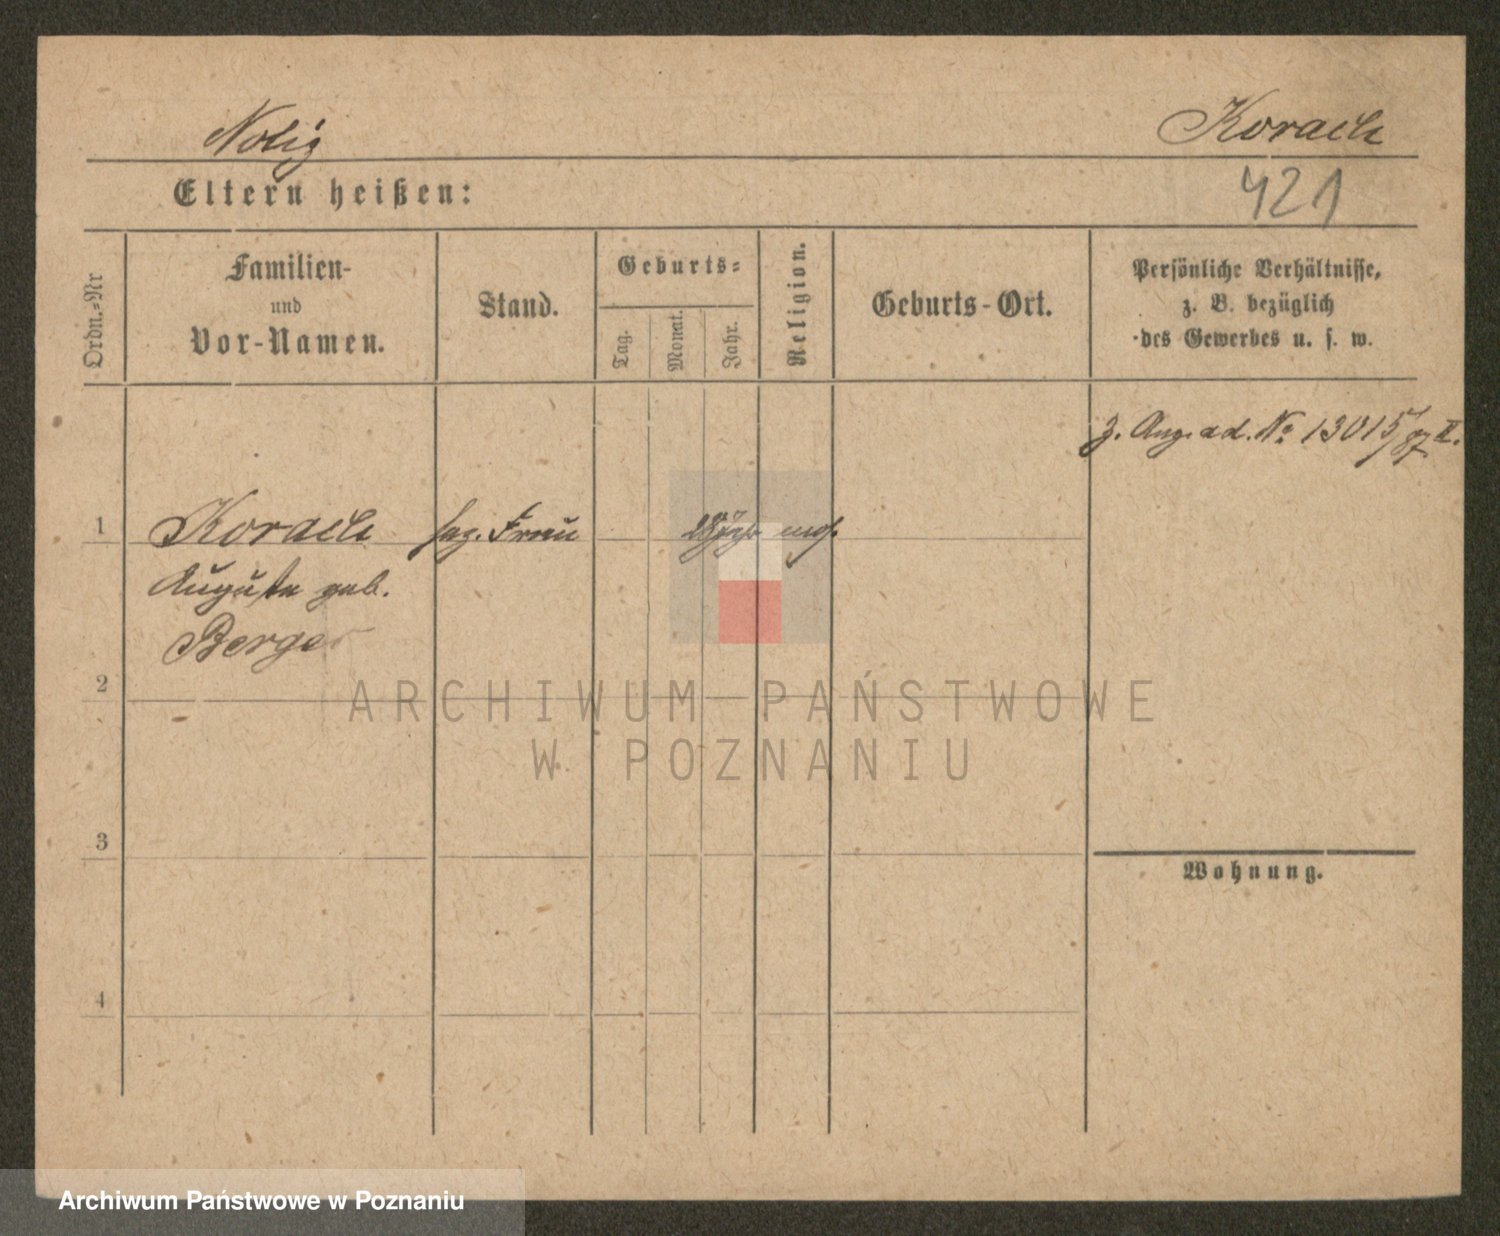 Notiz Korach
Eltern heißen: 421
Ordn.-Nr
Familien-
und
Vor-Namen.
Stand.
Geburts-
Tag.
Monat.
Jahr.
Religion.
Geburts-Ort.
Persönliche Verhältnisse,
z. B. bezüglich
des Gewerbes u. s. w.
z. Ang. ad. No 13015/87 II.
1 Korach Frau
Auguste geb.
Berger
2
ARCHIWUM PAŃSTWOWE
W POZNANIU
3
Wohnung.
4
Archiwum Państwowe w Poznaniu